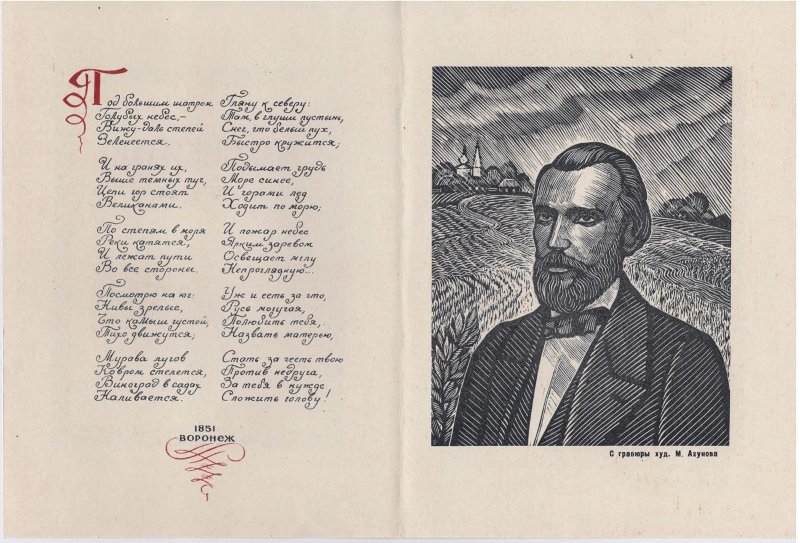 Под большим шатром
Голубых небес,—
Вижу-даль степей
Зеленеется.
И на гранях их,
Выше темных туч,
Цепи гор стоят
Великанами.
По степям в моря
Реки катятся,
И лежат пути
Во все стороны.
Посмотрю на юг:
Нивы зрелые,
Что камыш густой,
Тихо движутся;
Мурава лугов
Ковром стелется,
Виноград в садах
Наливается.
Гляну к северу:
Там, в глуши пустынь,
Снег, что белый пух,
Быстро кружится;
Подымает грудь
Море синее,
И горами лед
Ходит по морю;
И пожар небес
Ярким заревом
Освещает мглу
Непроглядную...
Уж и есть за что,
Русь могучая,
Полюбить тебя,
Назвать матерью,
Стать за честь твою
Против недруга,
За тебя в нужде
Сложить голову!
1851
ВОРОНЕЖ
С гравюры худ. М. Ахунова